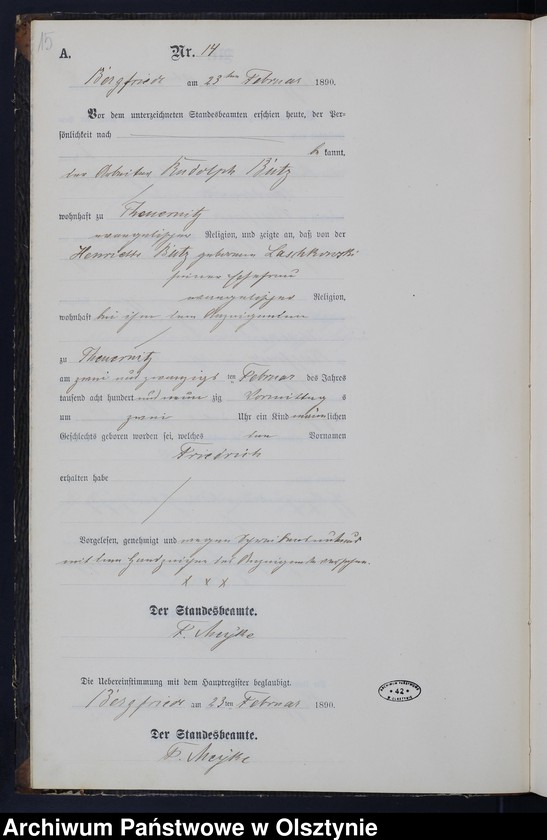 15
A.
Nr. 14
Bergfriede am 23ten Februar 1890.
Vor dem unterzeichneten Standesbeamten erschien heute, der Per-
sönlichkeit nach
be kannt,
der Arbeiter Rudolph Butz
wohnhaft zu Theuernitz
evangelischer Religion, und zeigte an, daß von der
Henriette Butz geborenen Laschkowski
seiner Ehefrau
evangelischer Religion,
wohnhaft bei ihm dem Anzeigenden
zu Theuernitz
am zwei und zwanzigsten Februar des Jahres
tausend acht hundert und neun zig Vormittag s
um zwei Uhr ein Kind männlichen
Geschlechts geboren worden sei, welches den Vornamen
Friedrich
erhalten habe
Vorgelesen, genehmigt und wegen Schreibensunkunde
mit dem Handzeichen des Anzeigenden versehen.
x x x
Der Standesbeamte.
Die Uebereinstimmung mit dem Hauptregister beglaubigt.
Bergfriede am 23ten Februar 1890.
Der Standesbeamte.
ARCHIWUM PAŃSTWOWE
* 42 *
W OLSZTYNIE
Archiwum Państwowe w Olsztynie